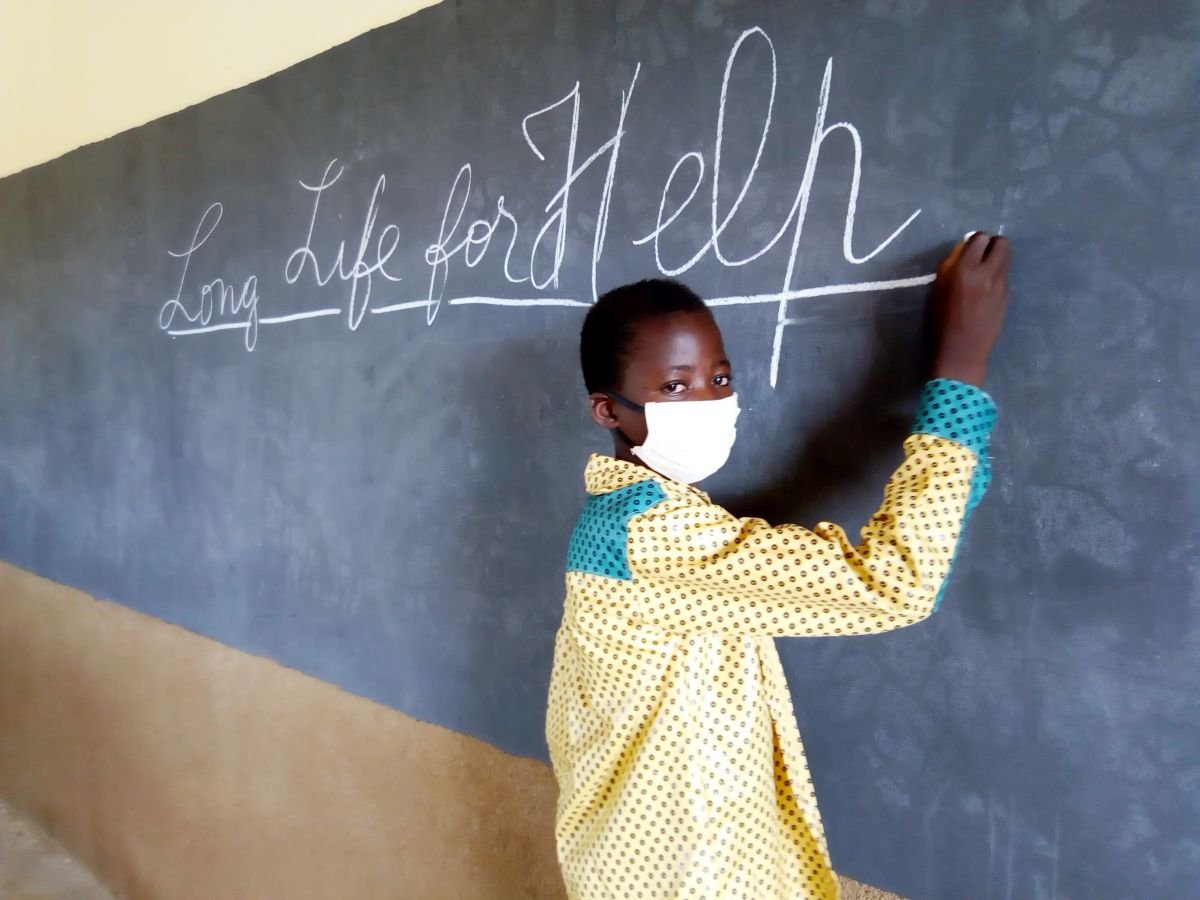 Long Life for Help